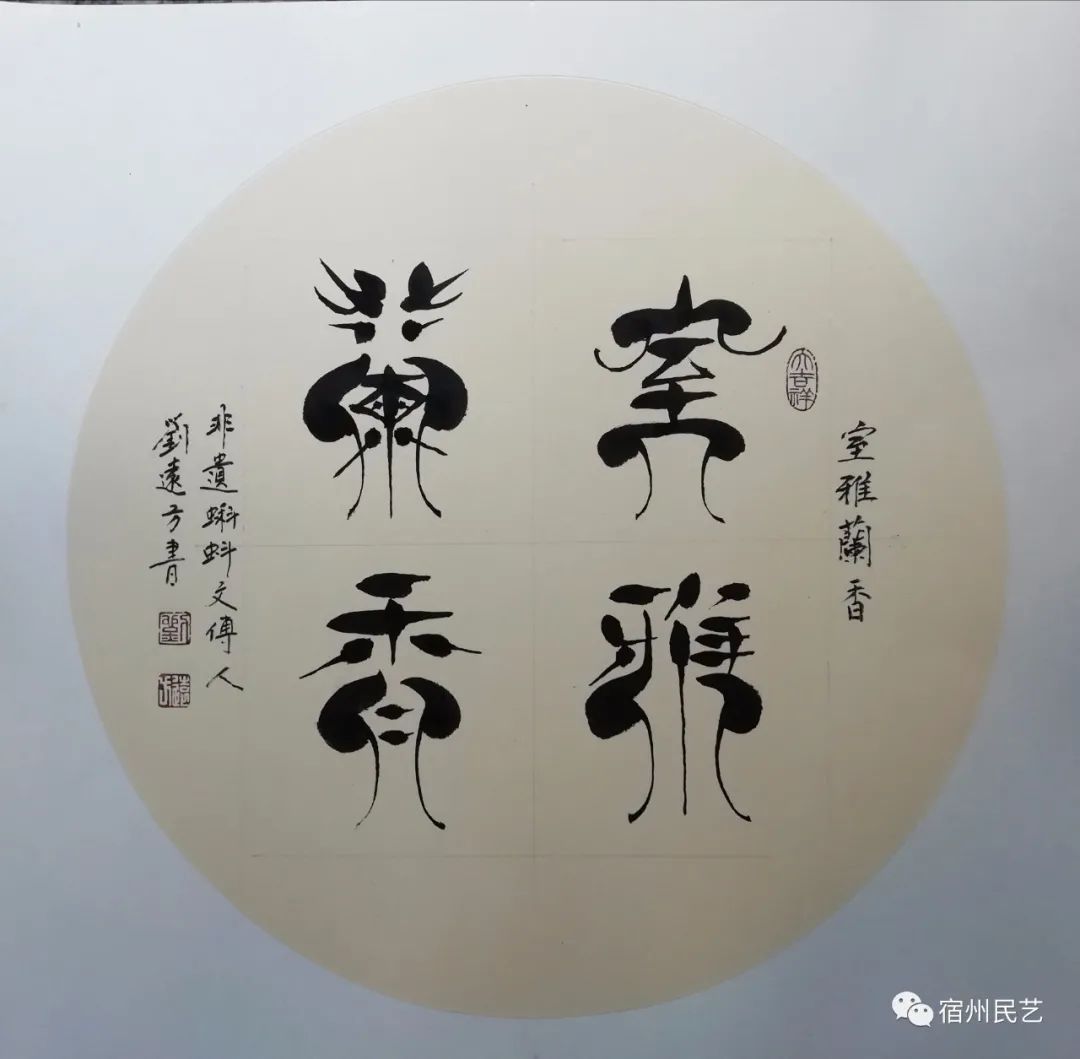 室雅
蘭香
大吉祥
室雅蘭香
非遺蝌蚪文傳人
劉遠方書
劉
遠方
宿州民艺